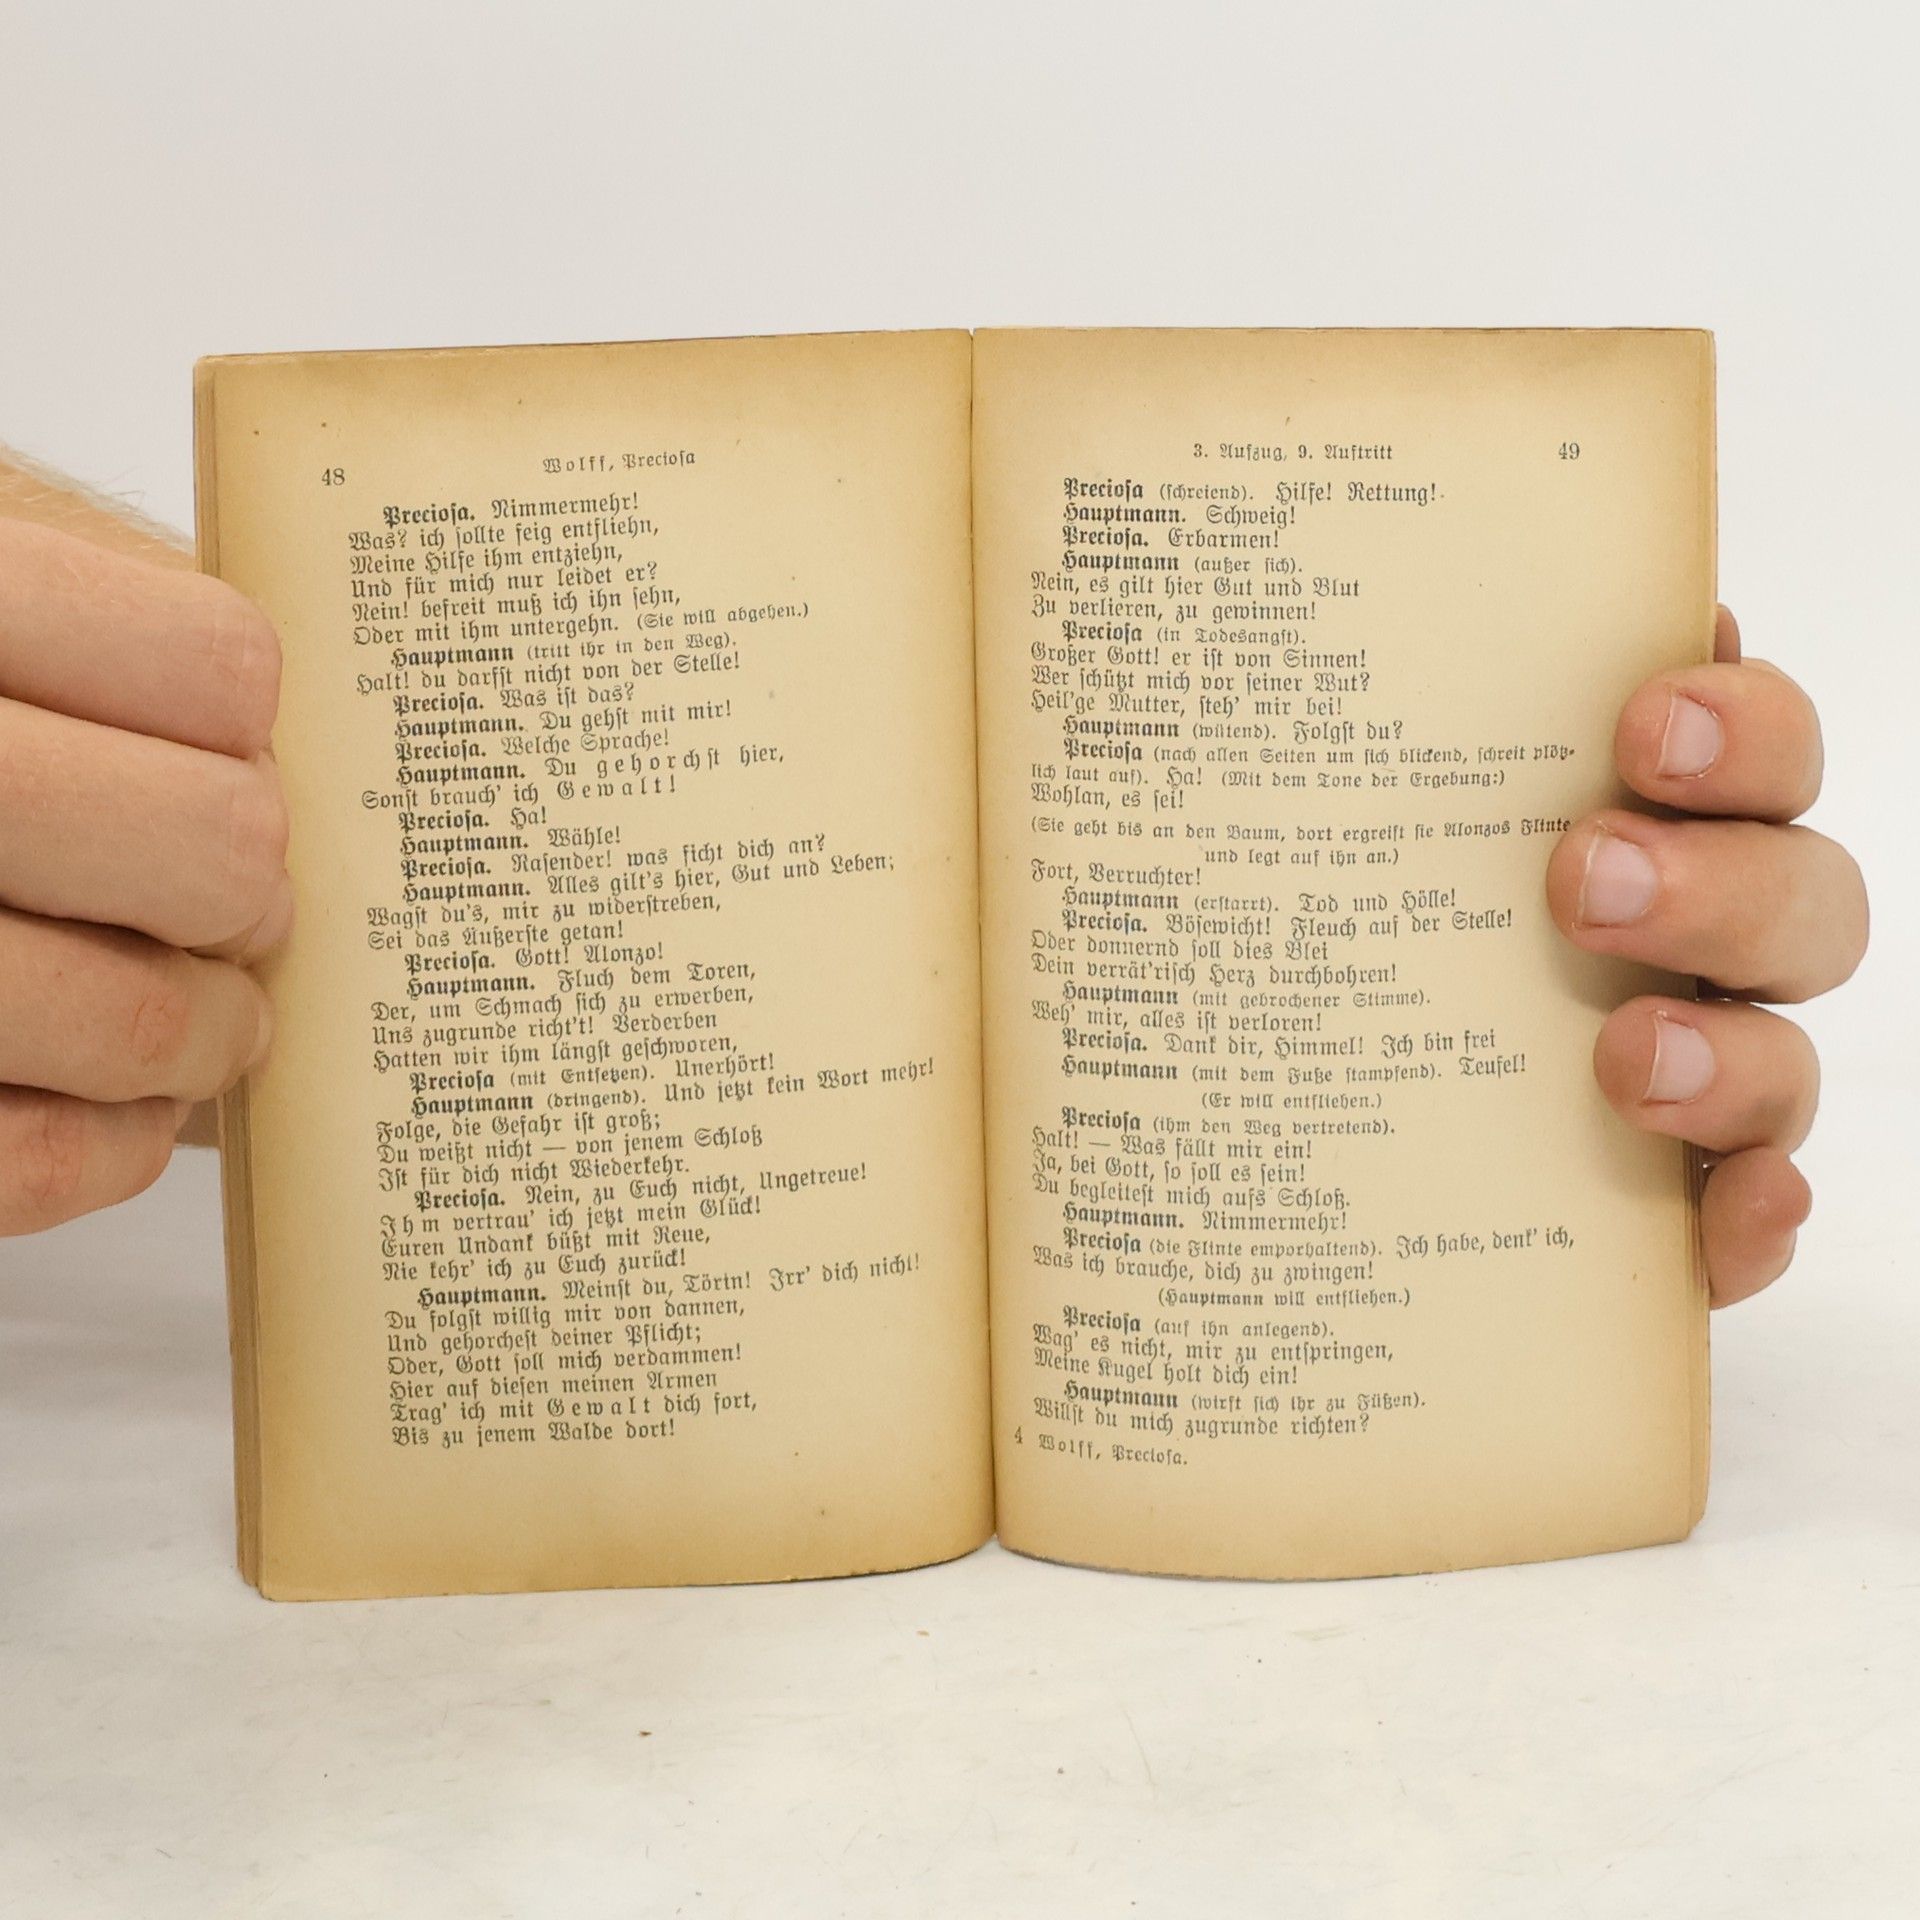 48
Wolff, Preciosa
Preciosa. Nimmermehr!
Was? ich sollte feig entfliehn,
Meine Hilfe ihm entziehn,
Und für mich nur leidet er?
Nein! befreit muß ich ihn sehn,
Oder mit ihm untergehn. (Sie will abgehen.)
Hauptmann (tritt ihr in den Weg).
Halt! du darfst nicht von der Stelle!
Preciosa. Was ist das?
Hauptmann. Du gehst mit mir!
Preciosa. Welche Sprache!
Hauptmann. Du gehorchst hier,
Sonst brauch' ich Gewalt!
Preciosa. Ha!
Hauptmann. Wähle!
Preciosa. Rasender! was ficht dich an?
Hauptmann. Alles gilt's hier, Gut und Leben;
Wagst du's, mir zu widerstreben,
Sei das Äußerste getan!
Preciosa. Gott! Alonzo!
Hauptmann. Fluch dem Toren,
Der, um Schmach sich zu erwerben,
Uns zugrunde richt't! Verderben
Hatten wir ihm längst geschworen,
Preciosa (mit Entsetzen). Unerhört!
Hauptmann (dringend). Und jetzt kein Wort mehr!
Folge, die Gefahr ist groß;
Du weißt nicht — von jenem Schloß
Ist für dich nicht Wiederkehr.
Preciosa. Nein, zu Euch nicht, Ungetreue!
Ihm vertrau' ich jetzt mein Glück!
Euren Undank büßt mit Reue,
Nie kehr' ich zu Euch zurück!
Hauptmann. Meinst du, Törin! Irr' dich nicht!
Du folgst willig mir von dannen,
Und gehorchest deiner Pflicht;
Oder, Gott soll mich verdammen!
Hier auf diesen meinen Armen
Trag' ich mit Gewalt dich fort,
Bis zu jenem Walde dort!
3. Aufzug, 9. Auftritt
49
Preciosa (schreiend). Hilfe! Rettung!
Hauptmann. Schweig!
Preciosa. Erbarmen!
Hauptmann (außer sich).
Nein, es gilt hier Gut und Blut
Zu verlieren, zu gewinnen!
Preciosa (in Todesangst).
Großer Gott! er ist von Sinnen!
Wer schützt mich vor seiner Wut?
Heil'ge Mutter, steh' mir bei!
Hauptmann (wütend). Folgst du?
Preciosa (nach allen Seiten um sich blickend, schreit plötz-
lich laut auf). Ha! (Mit dem Tone der Ergebung:)
Wohlan, es sei!
(Sie geht bis an den Baum, dort ergreift sie Alonzos Flinte
und legt auf ihn an.)
Fort, Verruchter!
Hauptmann (erstarrt). Tod und Hölle!
Preciosa. Bösewicht! Fleuch auf der Stelle!
Oder donnernd soll dies Blei
Dein verrät'risch Herz durchbohren!
Hauptmann (mit gebrochener Stimme).
Weh' mir, alles ist verloren!
Preciosa. Dank dir, Himmel! Ich bin frei
Hauptmann (mit dem Fuße stampfend). Teufel!
(Er will entfliehen.)
Preciosa (ihm den Weg vertretend).
Halt! — Was fällt mir ein!
Ja, bei Gott, so soll es sein!
Du begleitest mich aufs Schloß.
Hauptmann. Nimmermehr!
Preciosa (die Flinte emporhaltend). Ich habe, denk' ich,
Was ich brauche, dich zu zwingen!
(Hauptmann will entfliehen.)
Preciosa (auf ihn anlegend).
Wag' es nicht, mir zu entspringen,
Meine Kugel holt dich ein!
Hauptmann (wirft sich ihr zu Füßen).
Willst du mich zugrunde richten?
4 Wolff, Preciosa.